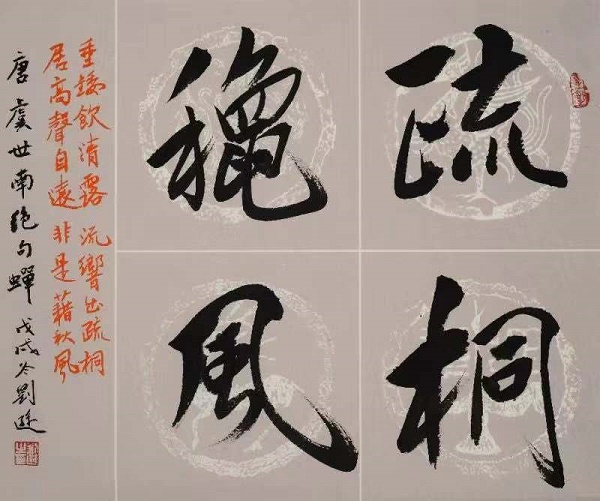 疏桐
穐風
垂緌飲清露 流響出疏桐
居高聲自遠 非是藉秋風
唐虞世南绝句蟬 戊戌冬劉